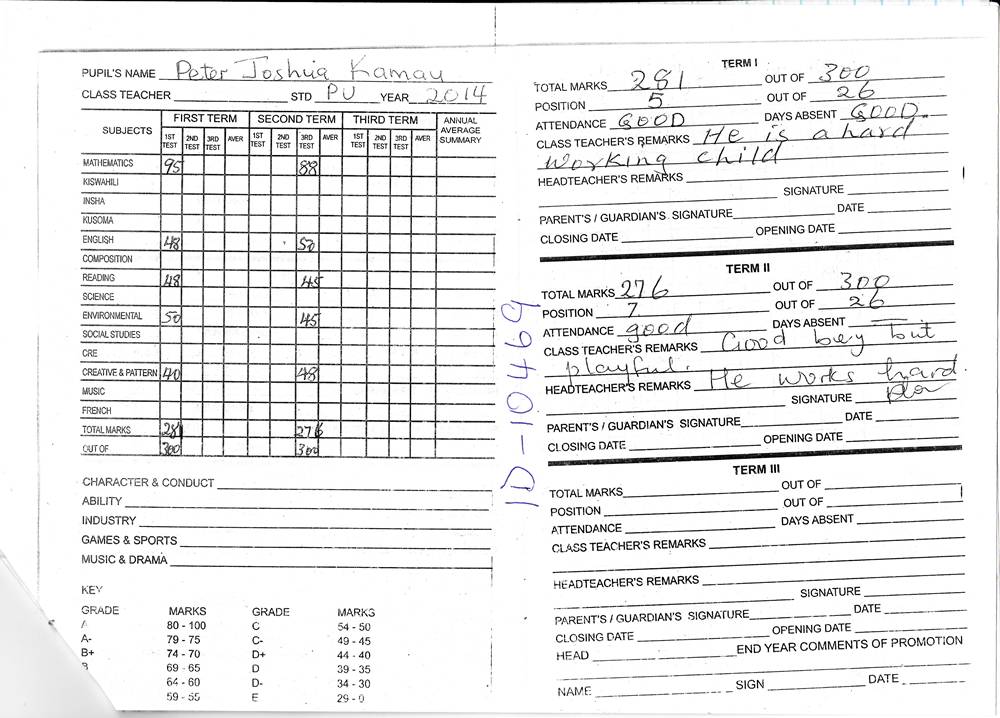 PUPIL'S NAME Peter Joshua Kamau
CLASS TEACHER STD PU YEAR 2014
SUBJECTS FIRST TERM SECOND TERM THIRD TERM ANNUAL AVERAGE SUMMARY
1ST TEST 2ND TEST 3RD TEST AVER 1ST TEST 2ND TEST 3RD TEST AVER 1ST TEST 2ND TEST 3RD TEST AVER
MATHEMATICS 95 88
KISWAHILI
INSHA
KUSOMA
ENGLISH 48 50
COMPOSITION
READING 48 45
SCIENCE
ENVIRONMENTAL 50 45
SOCIAL STUDIES
CRE
CREATIVE & PATTERN 40 48
MUSIC
FRENCH
TOTAL MARKS 281 276
OUT OF 300 300
CHARACTER & CONDUCT
ABILITY
INDUSTRY
GAMES & SPORTS
MUSIC & DRAMA
KEY
GRADE MARKS GRADE MARKS
A 80 - 100 C 54 - 50
A- 79 - 75 C- 49 - 45
B+ 74 - 70 D+ 44 - 40
B 69 - 65 D 39 - 35
64 - 60 D- 34 - 30
59 - 55 E 29 - 0
ID-10469
TERM I
TOTAL MARKS 281 OUT OF 300
POSITION 5 OUT OF 26
ATTENDANCE GOOD DAYS ABSENT GOOD.
CLASS TEACHER'S REMARKS He is a hard
working child
HEADTEACHER'S REMARKS
SIGNATURE
PARENT'S / GUARDIAN'S SIGNATURE DATE
CLOSING DATE OPENING DATE
TERM II
TOTAL MARKS 276 OUT OF 300
POSITION 7 OUT OF 26
ATTENDANCE good DAYS ABSENT
CLASS TEACHER'S REMARKS Good boy but
playful.
HEADTEACHER'S REMARKS He works hard.
SIGNATURE
PARENT'S / GUARDIAN'S SIGNATURE DATE
CLOSING DATE OPENING DATE
TERM III
TOTAL MARKS OUT OF
POSITION OUT OF
ATTENDANCE DAYS ABSENT
CLASS TEACHER'S REMARKS
HEADTEACHER'S REMARKS
SIGNATURE
PARENT'S / GUARDIAN'S SIGNATURE DATE
CLOSING DATE OPENING DATE
HEAD END YEAR COMMENTS OF PROMOTION
NAME SIGN DATE